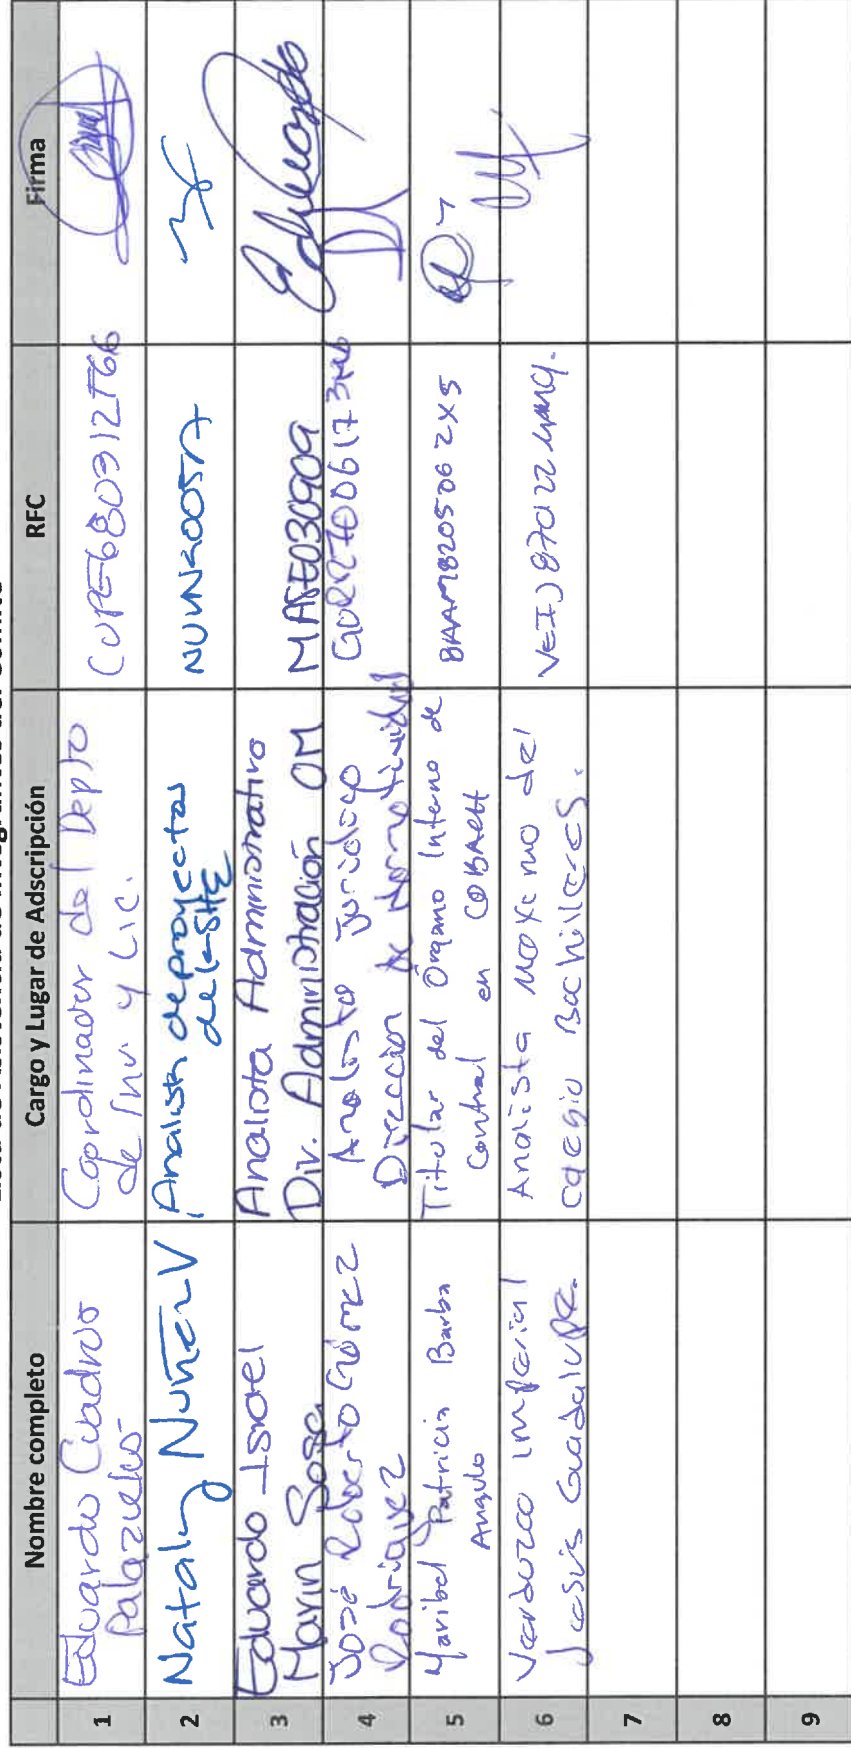 Nombre completo Cargo y Lugar de Adscripción RFC Firma
1 Eduardo Cuadros Palazuelos Coordinador del Depto de Inv. y Lic. CUPE680312T66
2 Nataly Nuñez V Analista de proyectos de la SHE
3 Eduardo Israel Marin Sosa Analista Administrativo Div. Administración OM MASE030909 Eduardo
4 José Roberto Gómez Rodriguez Analista Juridico Dirección de Normatividad
5 Maribel Patricia Barba Angulo Titular del Órgano Interno de Control en COBAEH BAAM820506 2X5
6 Verduzco Imperial Jesús Guadalupe. Analista Maximo del Colegio Bachilleres.
7
8
9